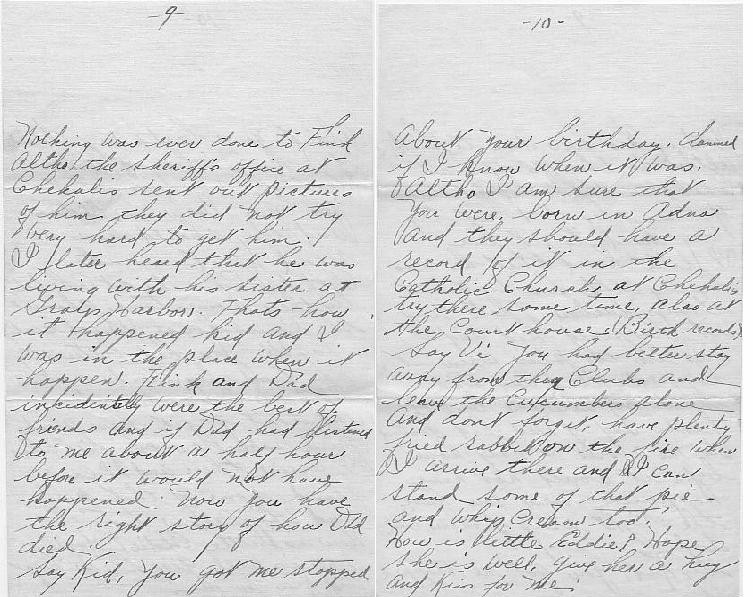 -9-
Nothing was ever done to Fink
Altho the sheriffs office at
Chehalis sent out pictures
of him they did not try
very hard to get him.
I later heard that he was
living with his sister at
Grays Harbor. Thats how
it happened kid and I
was in the place when it
happen. Fink and Dad
incidently were the best of
friends and if Dad had listened
to me about a half hour
before it would not have
happened. Now you have
the right story of how Dad
died.
Say Kid, you got me stopped
-10-
About your birthday. damned
if I know when it was.
Altho I am sure that
You were born in Adna
and they should have a
record of it in the
Catholic Church at Chehalis
try there some time, also at
the Court house (Birth records)
Say Vi you had better stay
away from they Clubs and
leave the Cucumbers alone
And dont forget, have plenty
fried rabbit on the fire when
I arrive there and I can
stand some of that pie -
and whip cream too.
How is little Eddie? Hope
she is well, give her a hug
and Kiss for me.